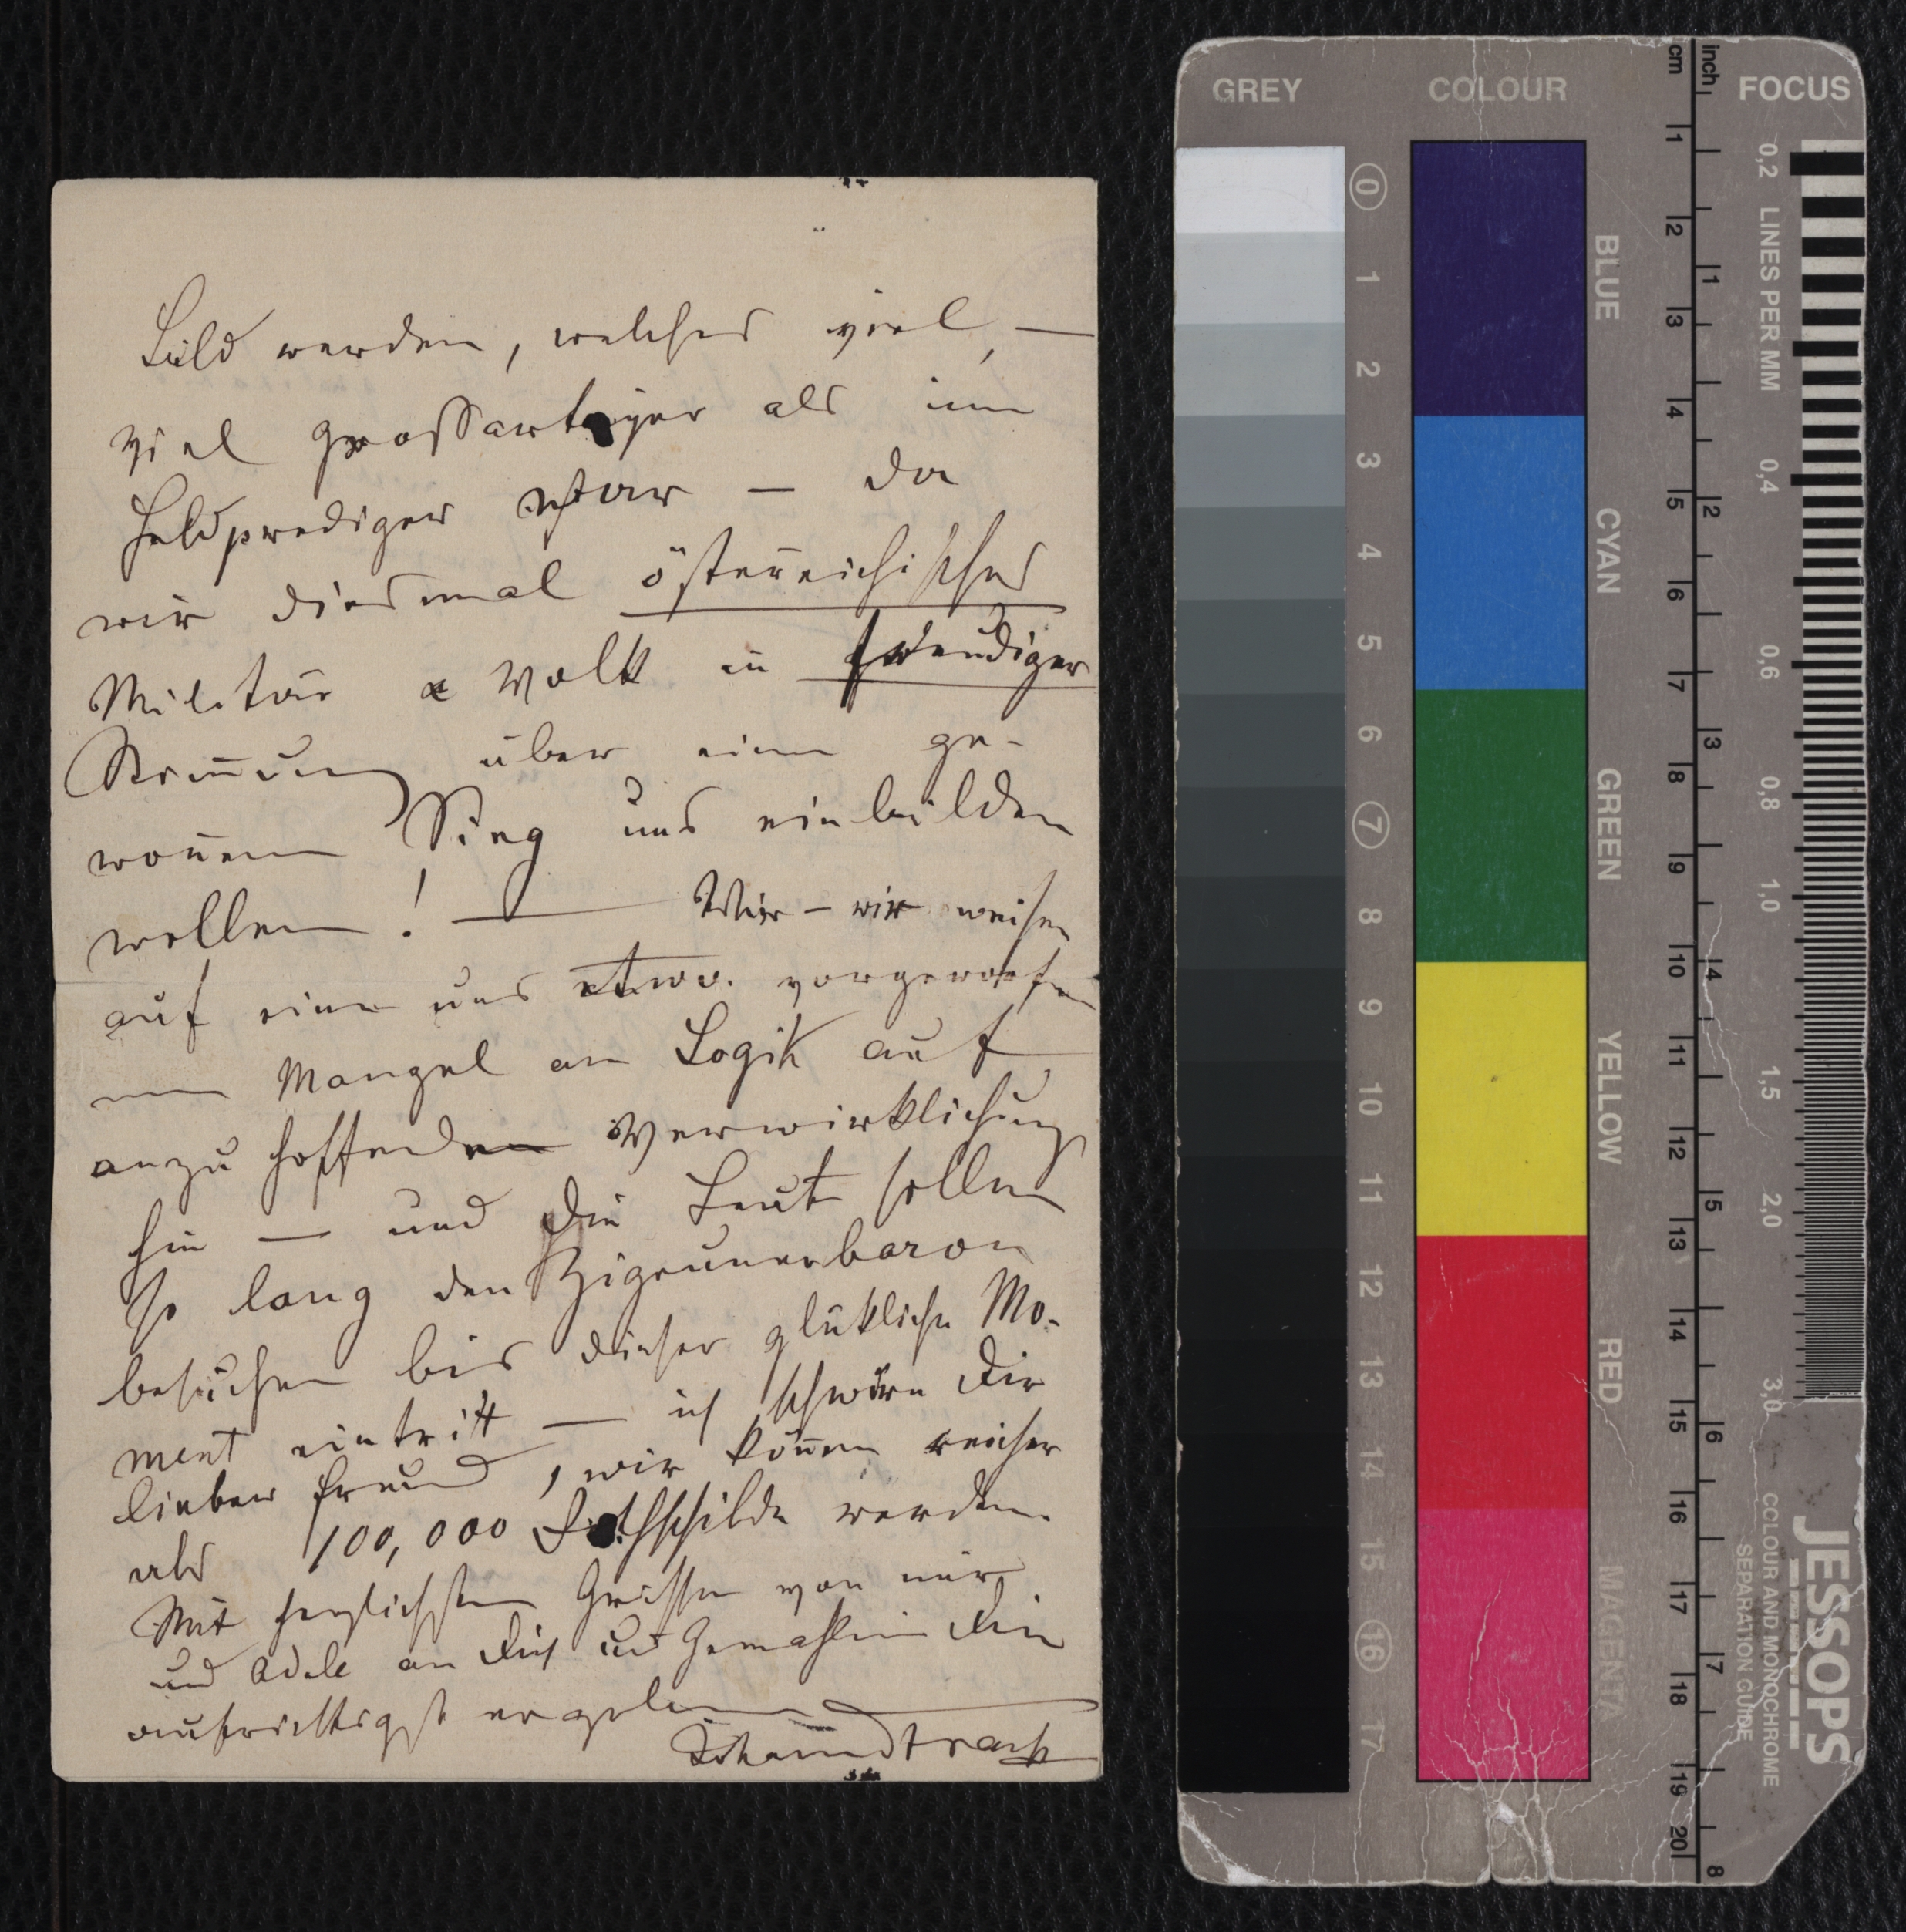 Bild werden, welches viel, —
viel grossartiger als im
Feldprediger war — da
wir diesmal österreichisches
Militär & Volk in freudiger
Stimmung über einen ge-
wonnenen Sieg uns einbilden
wollen! — Wir — wir weisen
auf einen uns etwa vorgeworfe-
nen Mangel an Logik auf
anzuhoffenden Verwirklichung
hin — und die Leute sollen
so lang den Zigeunerbaron
besuchen bis dieser glükliche Mo-
ment eintritt — ich schwöre Dir
lieber Freund, wir können reicher
als 100,000 Rothschilde werden.
Mit herzlichsten Grüssen von mir
und Adele an Dich und Gemahlin Dein
aufrichtigst ergebener
JohannStrauss
GREY COLOUR cm inch FOCUS
0 1 2 3 4 5 6 7 8 9 10 11 12 13 14 15 16 17
BLUE CYAN GREEN YELLOW RED MAGENTA
1 2 3 4 5 6 7 8 9 10 11 12 13 14 15 16 17 18 19 20
1 2 3 4 5 6 7 8
LINES PER MM
0,2 0,4 0,6 0,8 1,0 1,5 2,0 3,0
JESSOPS
COLOUR AND MONOCHROME
SEPARATION GUIDE